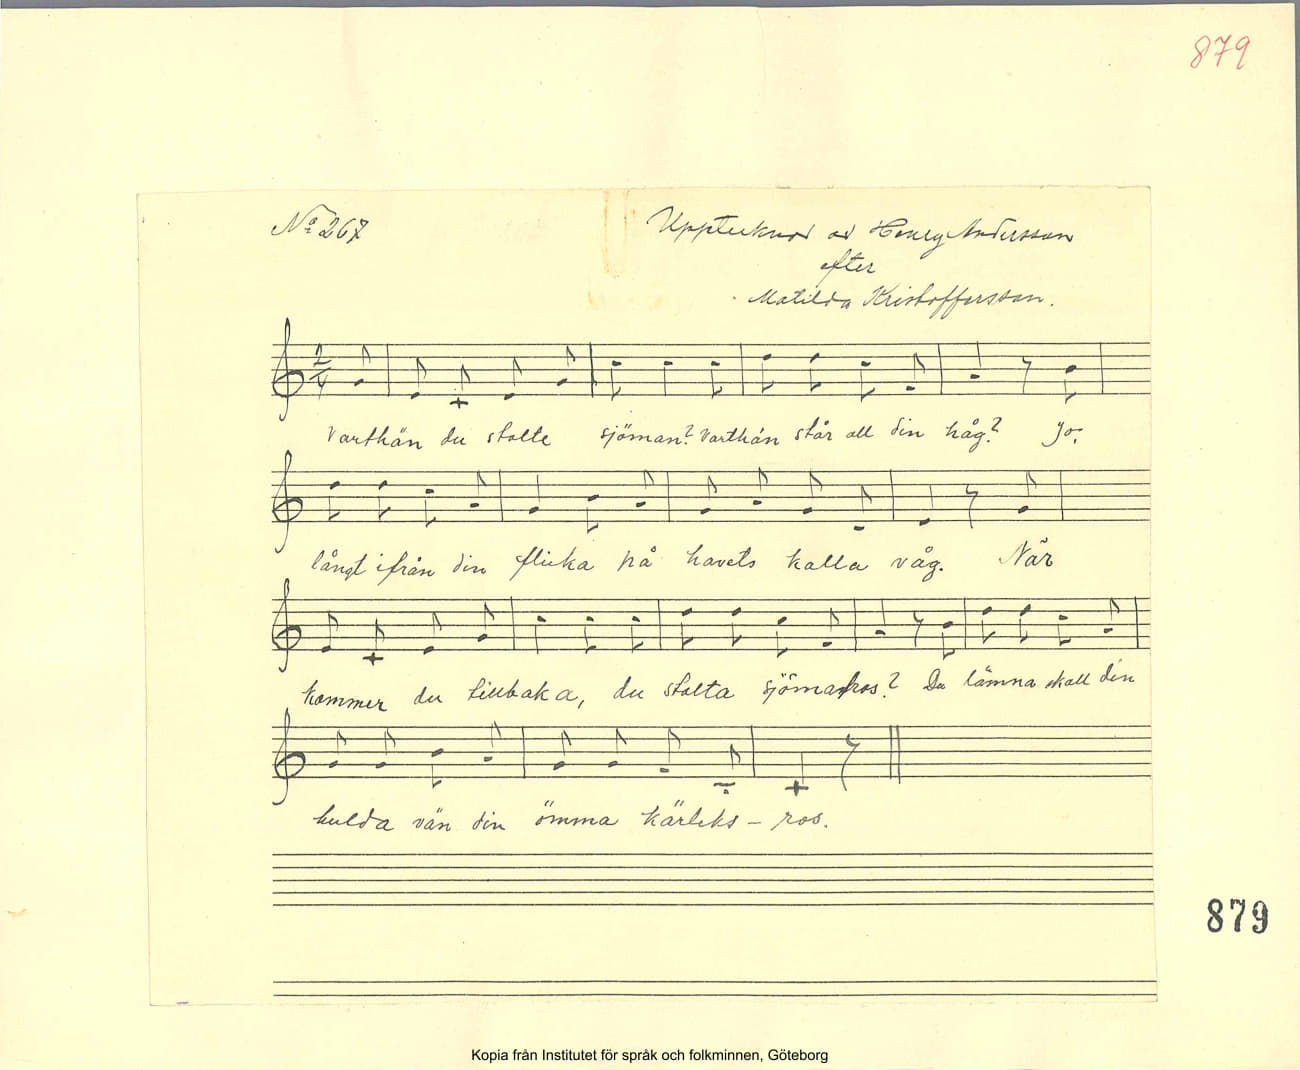 879
No 267
Upptecknad av Henry Andersson
efter
Matilda Kristoffersson.
2/4
Varthän du stolte sjöman? Varthän står all din håg? Jo,
långt ifrån din flicka på havets kalla våg. När
kommer du tillbaka, du stolta sjömansros? Du lämna skall din
hulda vän din ömma kärleks - ros.
879
Kopia från Institutet för språk och folkminnen, Göteborg